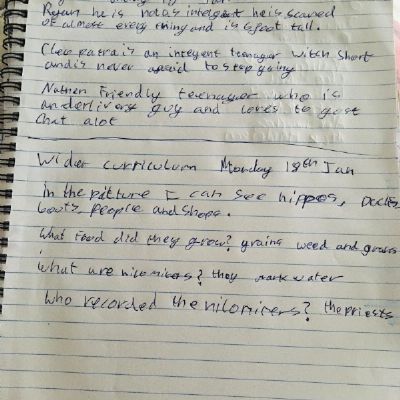 he is not as intelgent he is scared
of almost every thing and is 6 foot tall.
Cleopatra is an integent teenager witch short
and is never to stop going
Nathen Friendly teenager who is
an derlivery guy and loves to just
Chat alot
Wider curriculum Monday 18th Jan
In the pitture I can see hippos, Ducks
boats, people and shops.
What food did they grow? grains weed and
What are nilomiters? they mark water
Who recorded the nilomiters? the priests